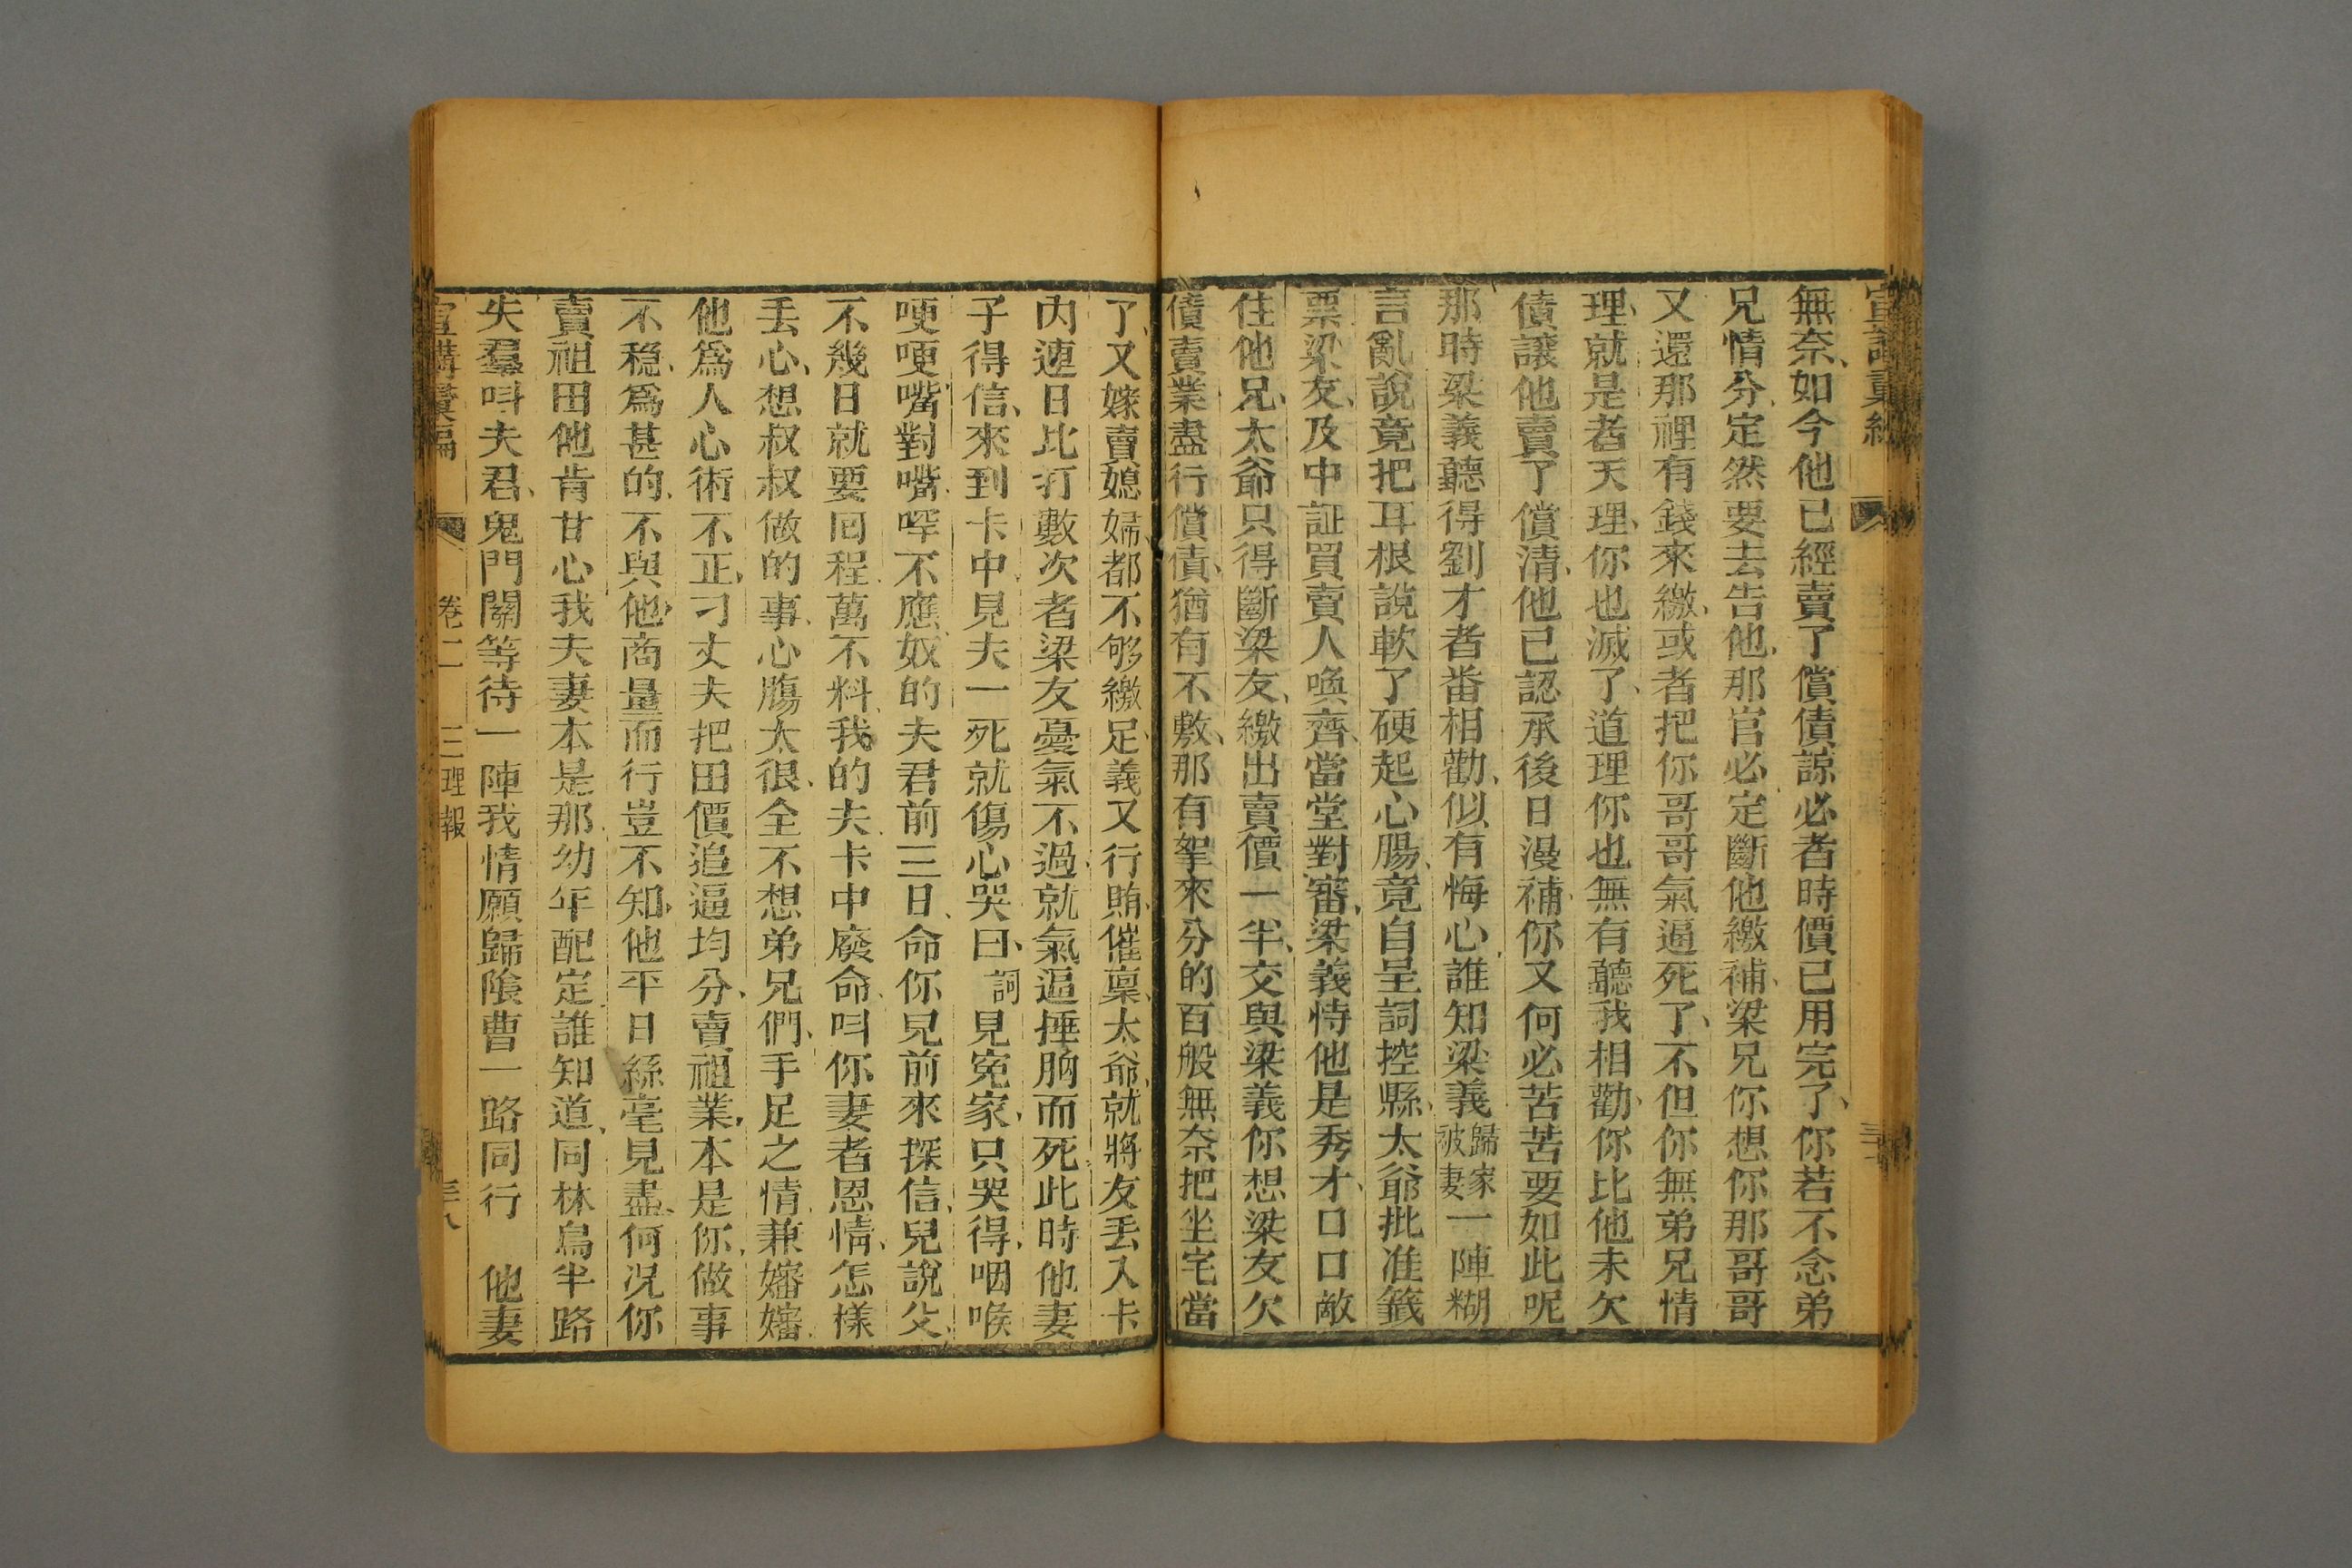 無奈、如今他已經賣了償債諒必者時價已用完了、你若不念弟
兄情分、定然要去告他、那官必定斷他繳補、梁兄你想你那哥哥
又還那裡有錢來繳、或者把你哥哥氣逼死了、不但你無弟兄情
理、就是者天理、你也滅了、道理你也無有聽我相勸、你比他未欠
債讓他賣了償清、他已認承後日漫補、你又何必苦苦要如此呢
那時梁義聽得劉才者番相勸、似有悔心、誰知梁義歸家被妻一陣糊
言亂說竟把耳根說軟了硬起心腸、竟自呈詞控縣、太爺批准籤
票、梁友、及中証買賣人喚齊、當堂對審、梁義恃他是秀才、口口敵
住他兄、太爺只得斷梁友、繳出賣價一半、交與梁義你想梁友欠
債賣業盡行償債、猶有不敷、那有拏來分的百般無奈把坐宅當
了、又嫁賣媳婦都不够繳足、義又行賄、催稟、太爺、就將友丟入卡
內連日比打數次者梁友憂氣不過、就氣逼捶胸而死此時他妻
子得信、來到卡中、見夫一死就傷心哭曰、詞見冤家、只哭得、咽喉
哽哽嘴對嘴、啅不應、奴的夫君前三日、命你兄前來探信、兒說父、
不幾日就要回程、萬不料、我的夫卡中廢命、呌你妻者恩情、怎樣
丟心、想叔叔做的事、心膓太很、全不想弟兄們、手足之情、兼嬸嬸、
他爲人心術不正、刁丈夫把田價追逼均分、賣祖業、本是你、做事
不稳、爲甚的、不與他、商量而行豈不知、他平日絲毫見盡、何况你
賣祖田他肯甘心我夫妻本是那幼年配定誰知道、同林鳥半路
失羣呌夫君、鬼門關等待一陣我情願歸陰曹一路同行 他妻
卷二 三理報 三八